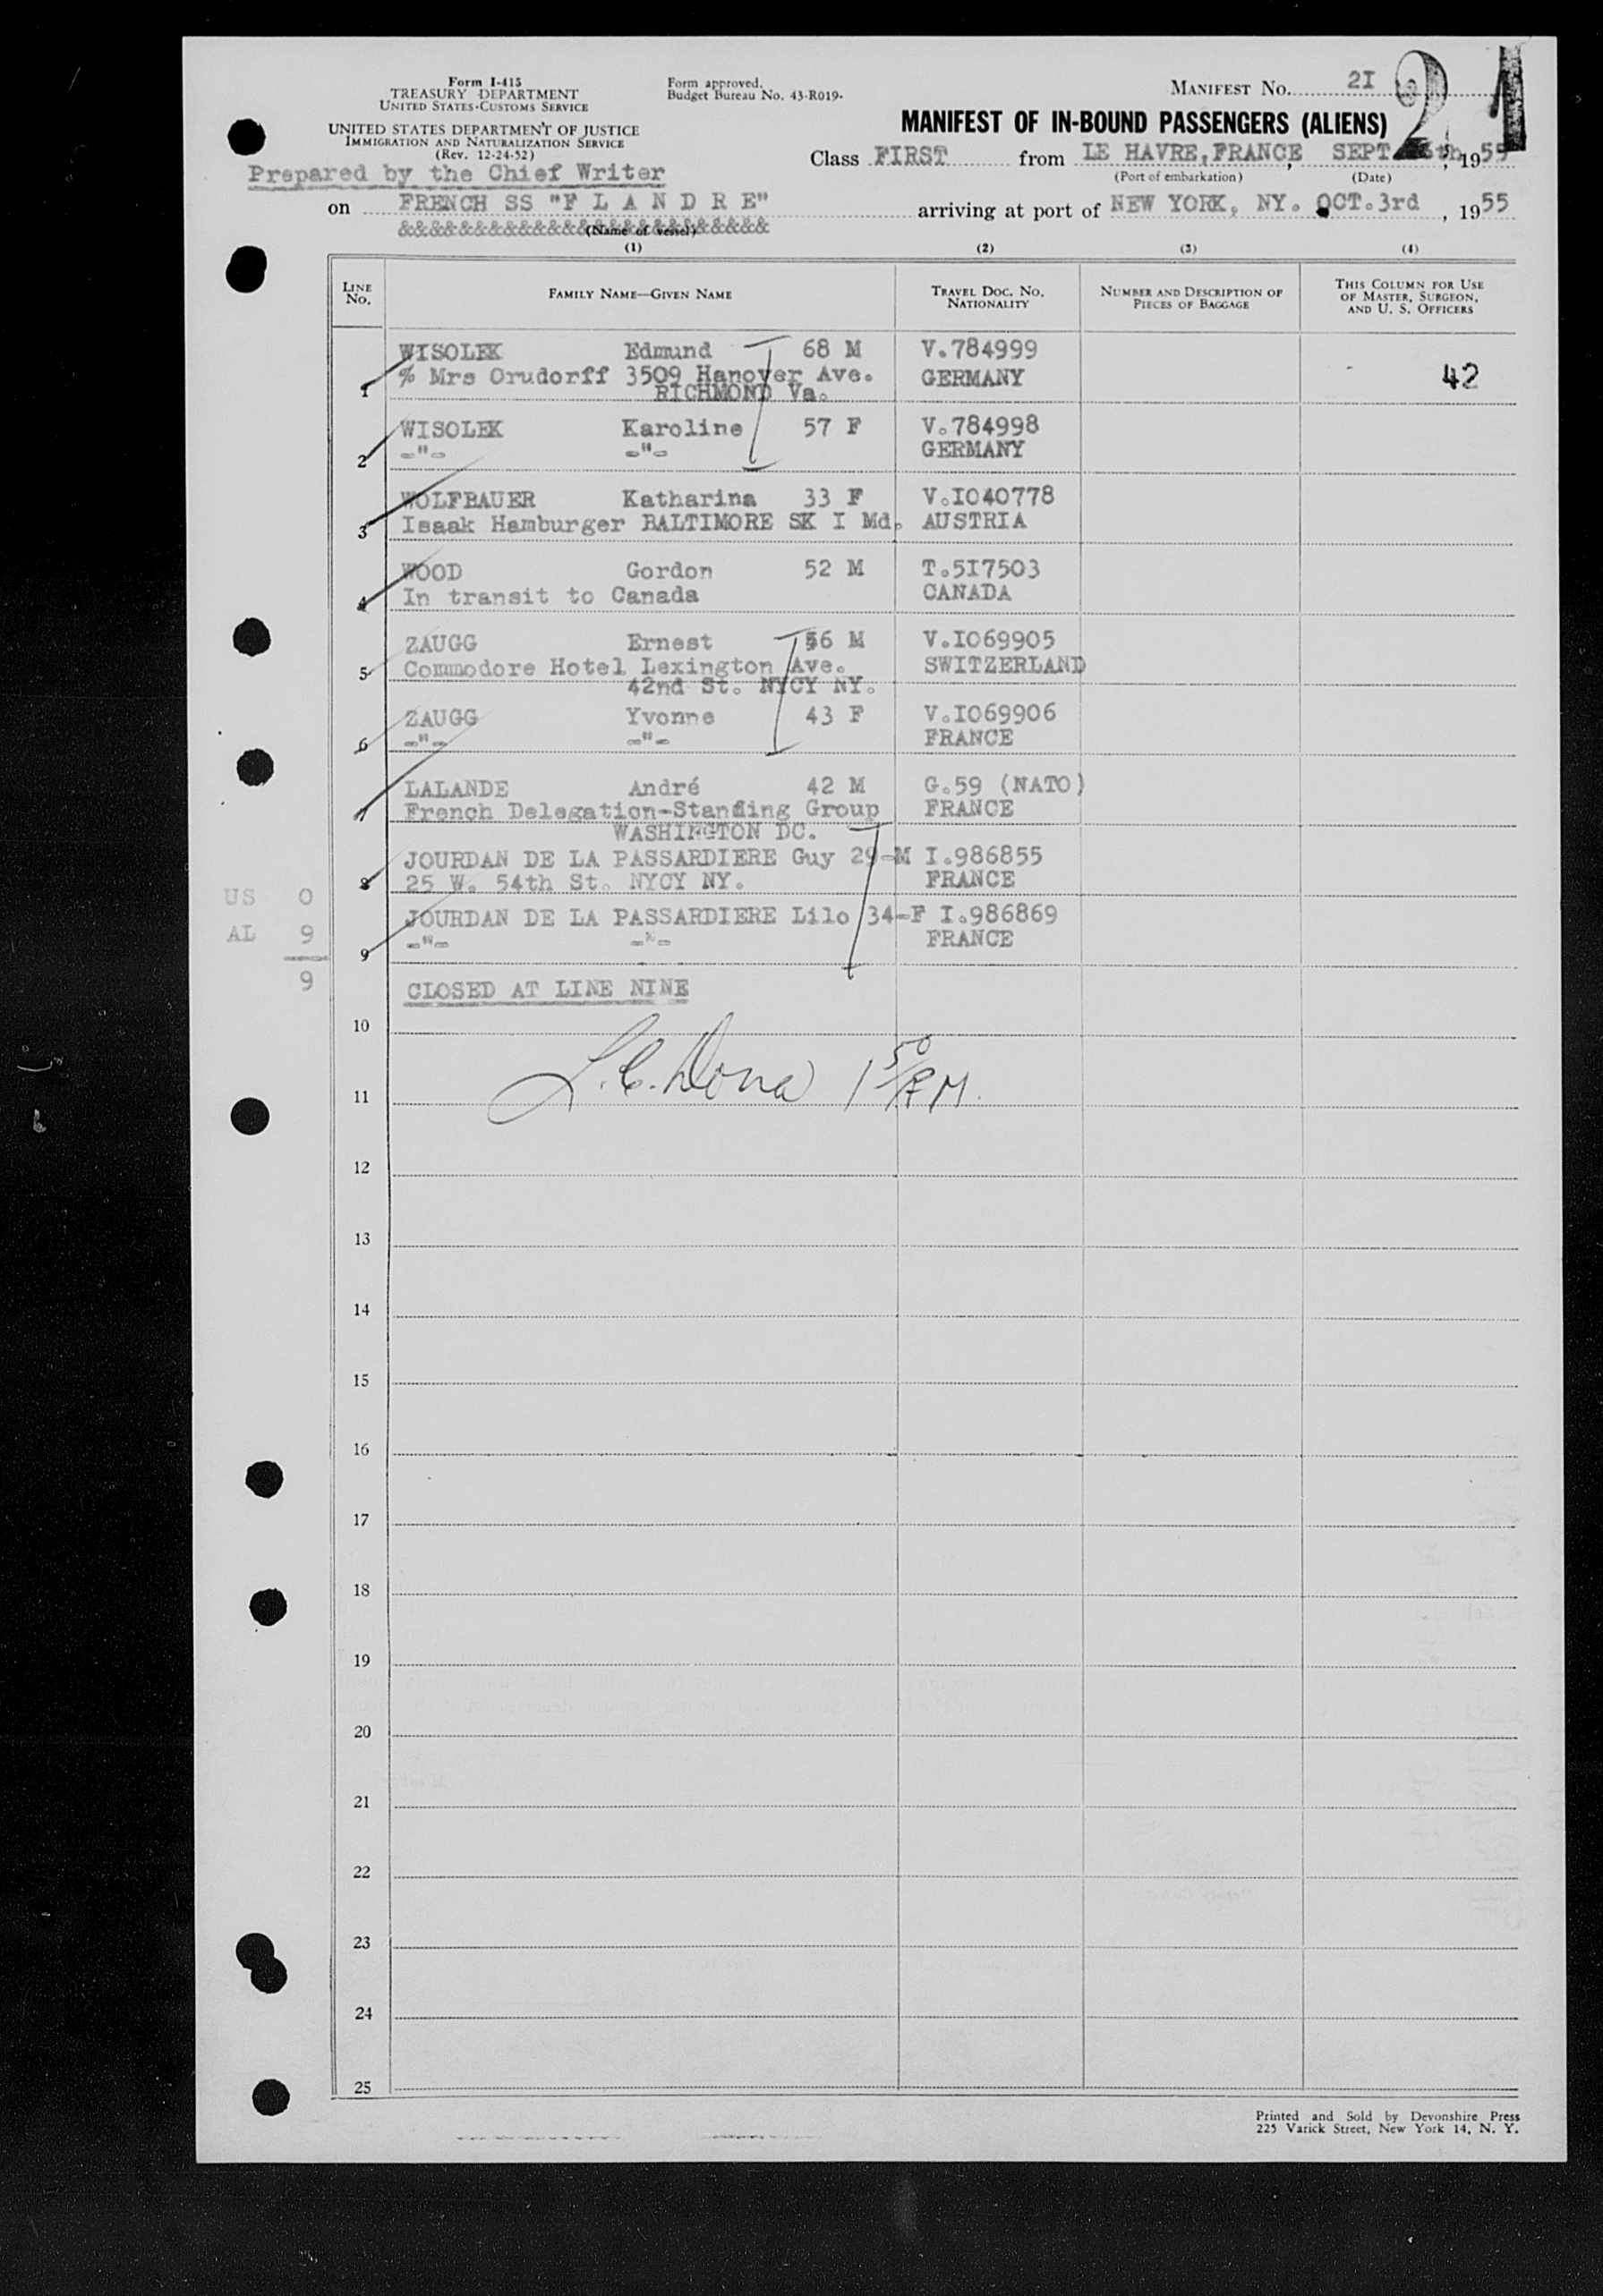 Form I-415
TREASURY DEPARTMENT
UNITED STATES CUSTOMS SERVICE
UNITED STATES DEPARTMENT OF JUSTICE
IMMIGRATION AND NATURALIZATION SERVICE
(Rev. 12-24-52)
Form approved.
Budget Bureau No. 43-R019-
MANIFEST No. 2I
21
MANIFEST OF IN-BOUND PASSENGERS (ALIENS)
Prepared by the Chief Writer
Class FIRST from LE HAVRE, FRANCE, SEPT , 1955
(Port of embarkation) (Date)
on FRENCH SS "F L A N D R E" arriving at port of NEW YORK, NY. OCT. 3rd, 1955
&&&&&&&&&&&&&&&&&&&&&&&&&
(Name of vessel)
(1) (2) (3) (4)
LINE No. FAMILY NAME—GIVEN NAME TRAVEL DOC. NO. NATIONALITY NUMBER AND DESCRIPTION OF PIECES OF BAGGAGE THIS COLUMN FOR USE OF MASTER, SURGEON, AND U. S. OFFICERS
WISOLEK Edmund 68 M V.784999
1 % Mrs Orudorff 3509 Hanover Ave. GERMANY 42
RICHMOND Va.
WISOLEK Karoline 57 F V.784998
2 -"- -"- GERMANY
WOLFBAUER Katharina 33 F V.I040778
3 Isaak Hamburger BALTIMORE SK I Md. AUSTRIA
WOOD Gordon 52 M T.5I7503
4 In transit to Canada CANADA
ZAUGG Ernest 56 M V.I069905
5 Commodore Hotel Lexington Ave. SWITZERLAND
42nd St. NYCY NY.
ZAUGG Yvonne 43 F V.I069906
6 -"- -"- FRANCE
LALANDE André 42 M G.59 (NATO)
7 French Delegation-Standing Group FRANCE
WASHINGTON DC.
JOURDAN DE LA PASSARDIERE Guy 29-M I.986855
8 25 W. 54th St. NYCY NY. FRANCE
US 0
JOURDAN DE LA PASSARDIERE Lilo 34-F I.986869
AL 9
9 -"- -"- FRANCE
9
CLOSED AT LINE NINE
10
11 1 50 PM.
12
13
14
15
16
17
18
19
20
21
22
23
24
25
Printed and Sold by Devonshire Press
225 Varick Street, New York 14, N. Y.